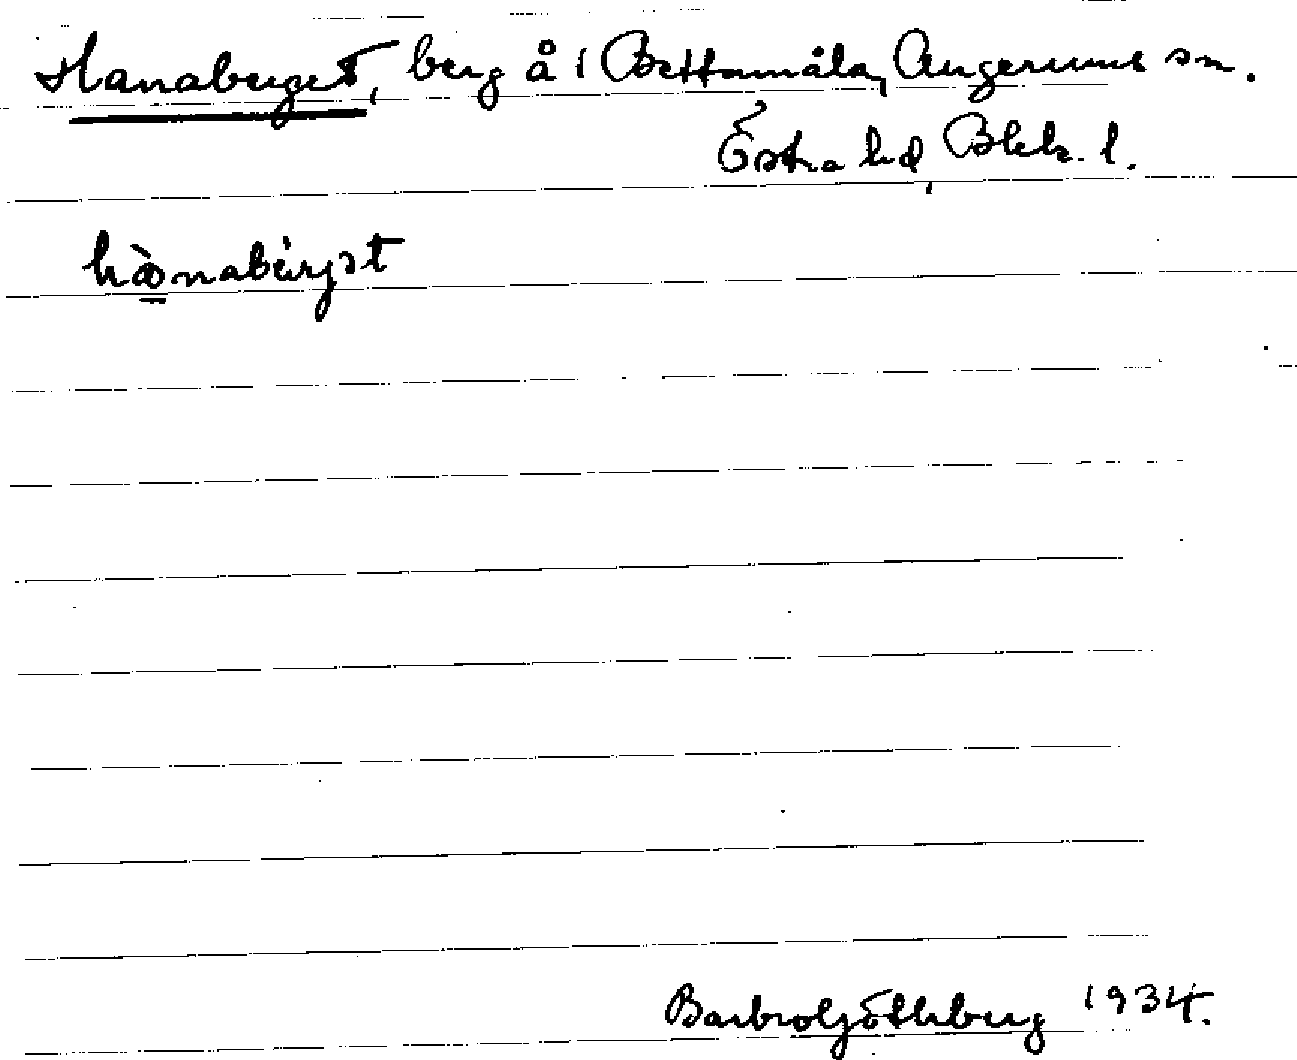 Hanaberget, berg å 1 Bettamåla, Augerums sn.
Östra hd, Blek. l.
Barbro Götheberg 1934.